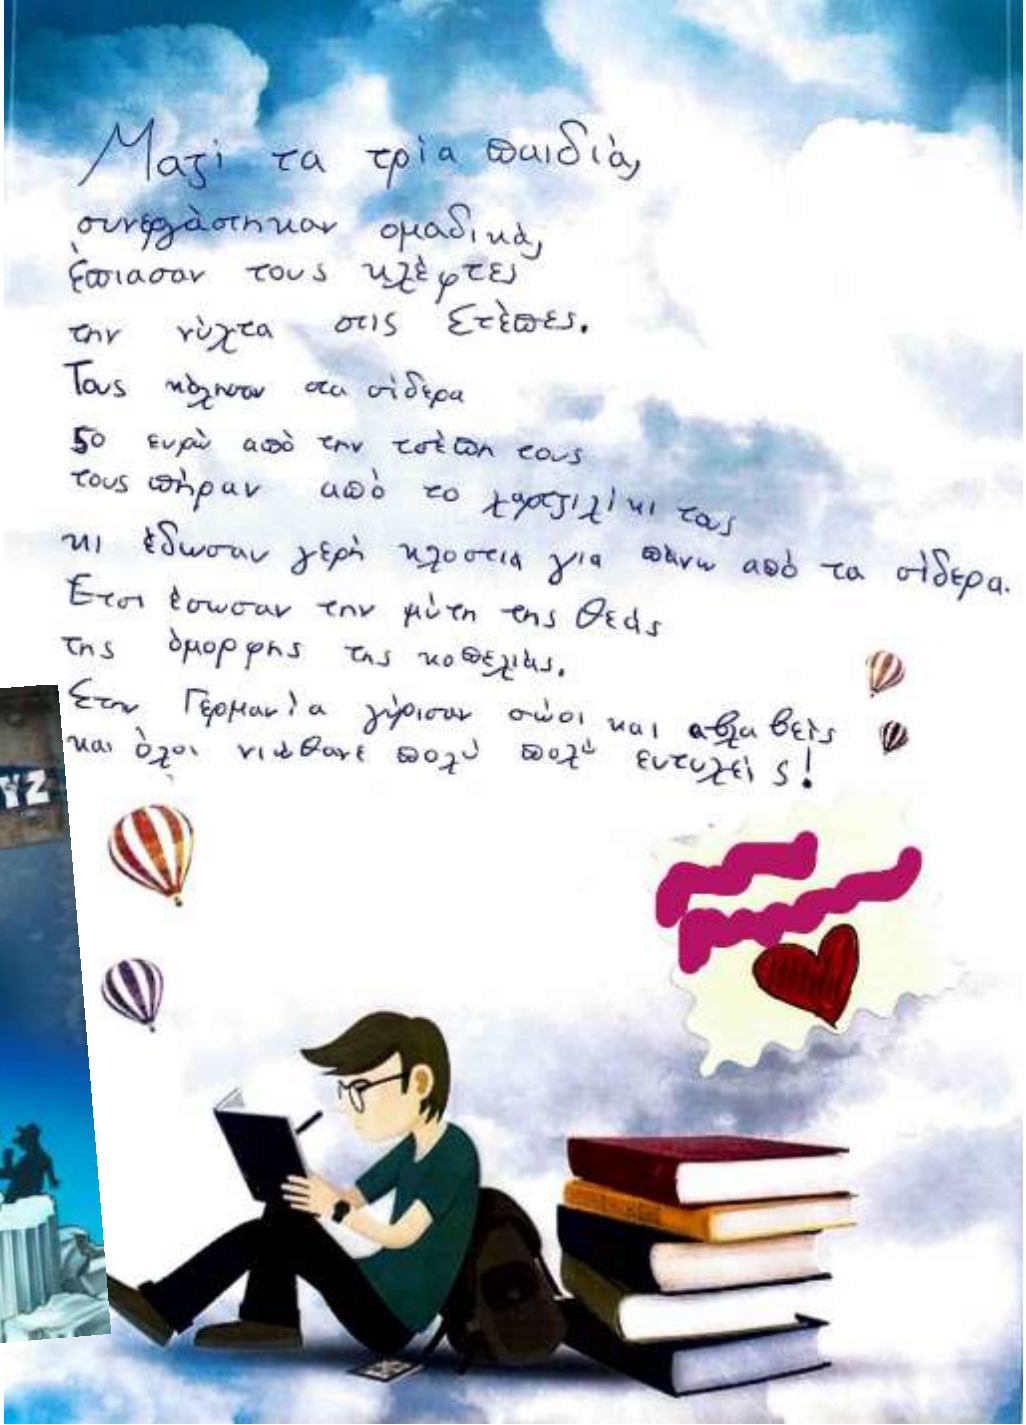 Μαζί τα τρία παιδιά,
συνεργάστηκαν ομαδικά,
έπιασαν τους κλέφτες
την νύχτα στις Στέπες.
Τους κόλησαν στα σίδερα
50 ευρώ από την τσέπη τους
τους πήραν από το χαρτζιλίκι τους
κι έδωσαν γερή κλοστιά για πάνω από τα σίδερα.
Ετσι έσωσαν την μύτη της θεάς
της όμορφης της κοπελιάς.
Στην Γερμανία γύρισαν σώοι και αβλαβείς
και όλοι νιώθανε πολύ πολύ ευτυχείς!
YZ